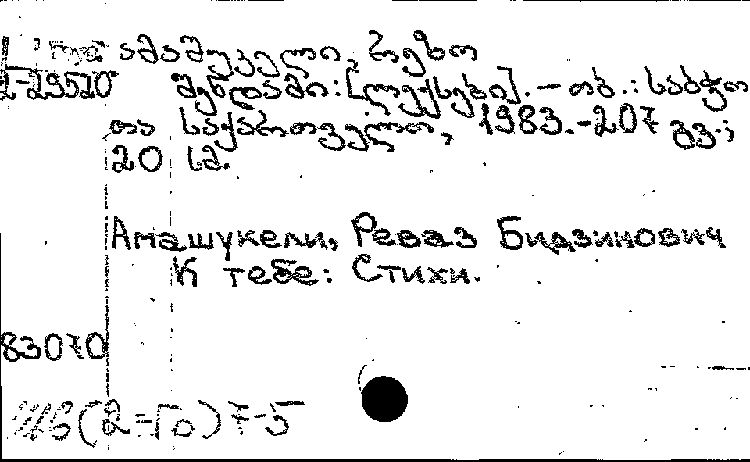 ამაშუკელი, რეზო
2-29520 შენდამი: [ლექსები]. — თბ.: საბჭო
თა საქართველო, 1983.-207 გვ.;
20 სმ.
Амашукели, Реваз Бидзинович
К тебе: Стихи.
83070
(2=Го) 7-5